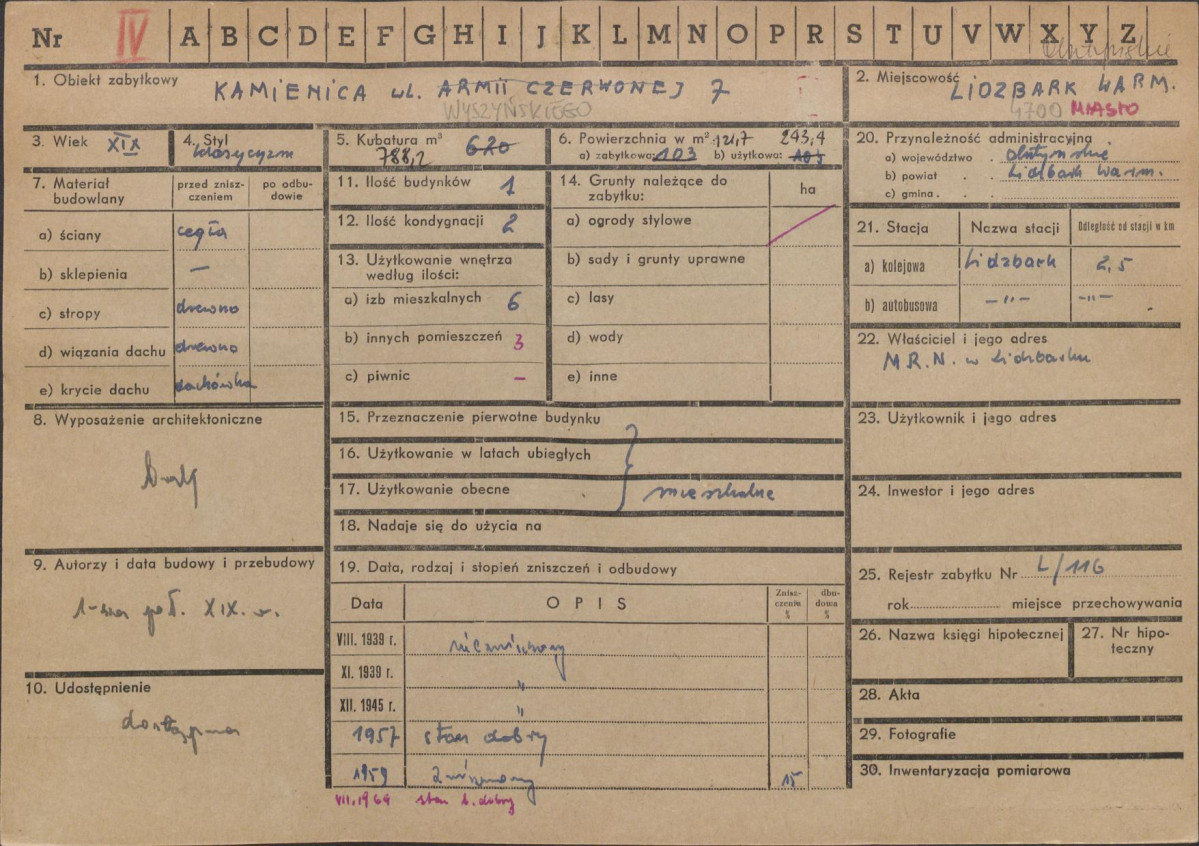 Nr IV A B C D E F G H I J K L M N O P R S T U V W X Y Z
olsztyńskie
1. Obiekt zabytkowy KAMIENICA ul. ARMII CZERWONEJ 7
WYSZYŃSKIEGO
2. Miejscowość LIDZBARK WARM.
4700 MIASTO
3. Wiek XIX
4. Styl klasycyzm
5. Kubatura m³ 620
788,2
6. Powierzchnia w m² 121,7 243,4
a) zabytkowa: 103 b) użytkowa: 103
7. Materiał budowlany
przed zniszczeniem
po odbudowie
a) ściany cegła
b) sklepienia —
c) stropy drewno
d) wiązania dachu drewno
e) krycie dachu dachówka
8. Wyposażenie architektoniczne
9. Autorzy i data budowy i przebudowy
1-sza poł. XIX. w.
10. Udostępnienie
dostępna
11. Ilość budynków 1
12. Ilość kondygnacji 2
13. Użytkowanie wnętrza
według ilości:
a) izb mieszkalnych 6
b) innych pomieszczeń 3
c) piwnic —
14. Grunty należące do
zabytku:
ha
a) ogrody stylowe
b) sady i grunty uprawne
c) lasy
d) wody
e) inne
15. Przeznaczenie pierwotne budynku
16. Użytkowanie w latach ubiegłych
17. Użytkowanie obecne mieszkalne
18. Nadaje się do użycia na
19. Data, rodzaj i stopień zniszczeń i odbudowy
Data OPIS Zniszczeniu % dbudowa %
VIII. 1939 r. niezniszczony
XI. 1939 r. "
XII. 1945 r. "
1957 stan dobry
1959 zniszczony 15
VII.1964 stan b. dobry
20. Przynależność administracyjna
a) województwo . olsztyńskie
b) powiat . . Lidzbark Warm.
c) gmina . .
21. Stacja Nazwa stacji Odległość od stacji w km
a) kolejowa Lidzbark 2,5
b) autobusowa —"— —"—
22. Właściciel i jego adres
M.R.N. w Lidzbarku
23. Użytkownik i jego adres
24. Inwestor i jego adres
25. Rejestr zabytku Nr L/116
rok miejsce przechowywania
26. Nazwa księgi hipotecznej
27. Nr hipoteczny
28. Akta
29. Fotografie
30. Inwentaryzacja pomiarowa